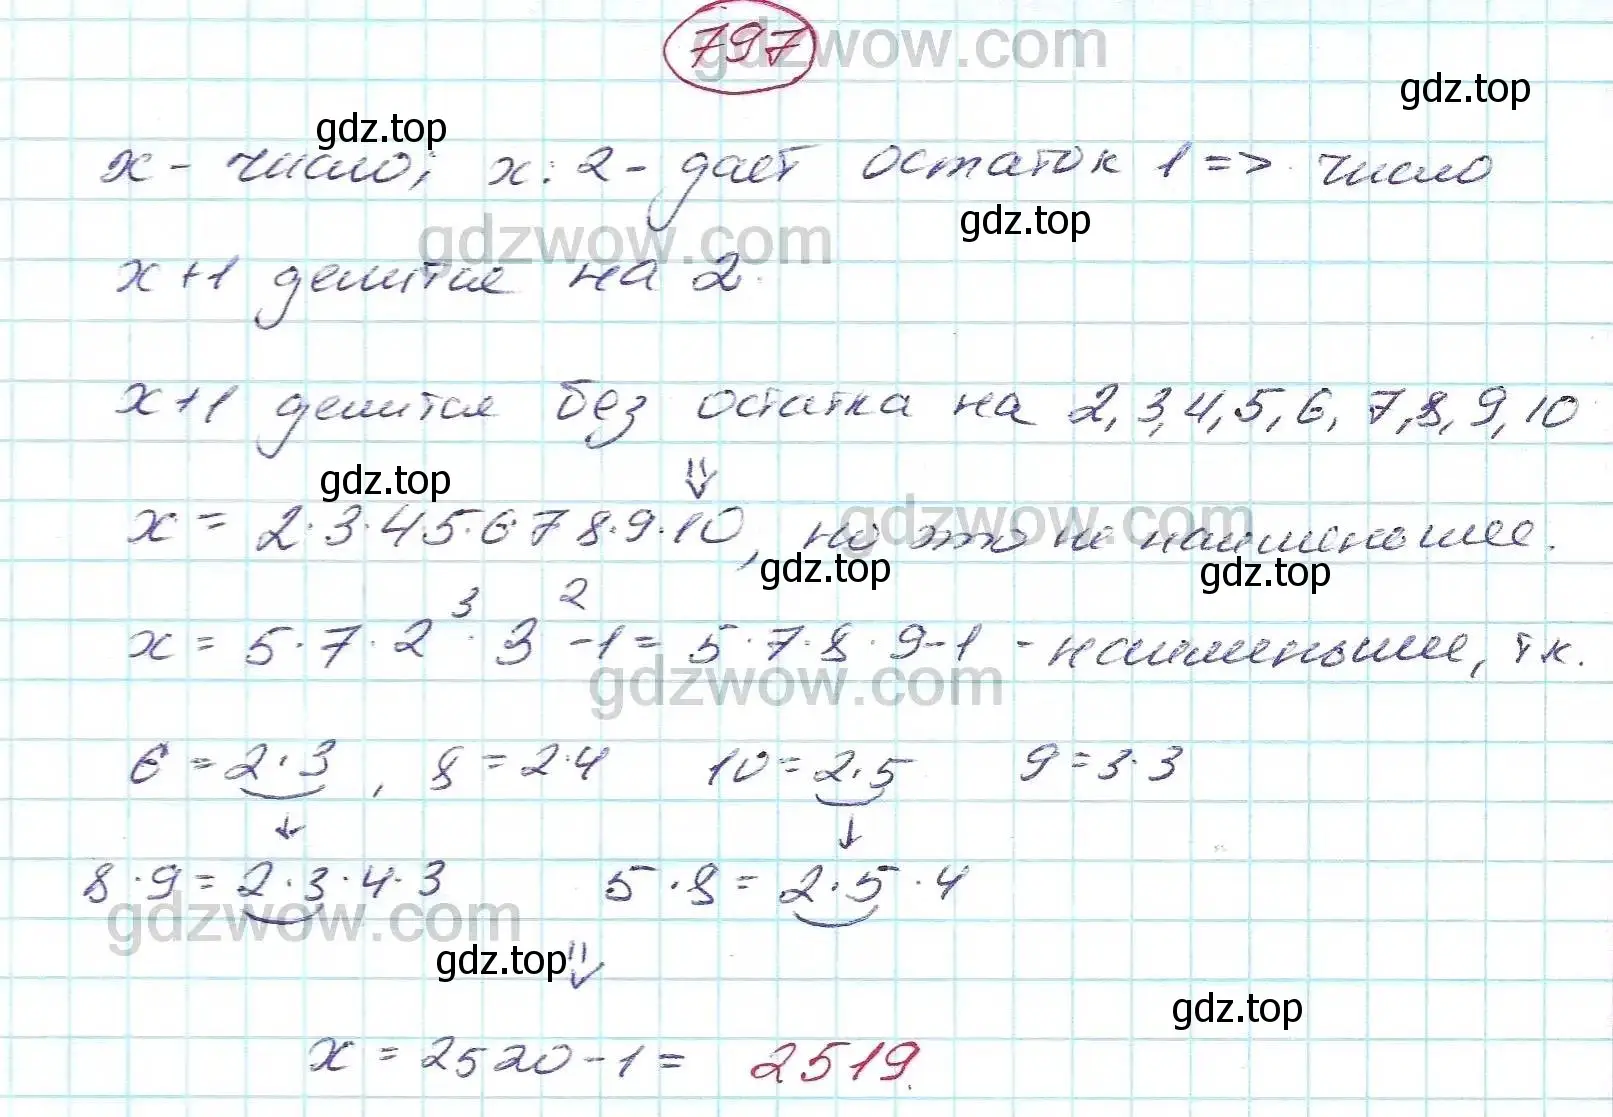 797
gdzwow.com
gdz.top
gdz.top
x - число; x : 2 - дает остаток 1 => число
gdz.top
gdzwow.com
x+1 делится на 2.
x+1 делится без остатка на 2, 3, 4, 5, 6, 7, 8, 9, 10
⇓
gdz.top
gdzwow.com
x = 2·3·4·5·6·7·8·9·10, но это не наименьшее.
gdz.top
gdz.top
x = 5·7·2³·3² -1 = 5·7·8·9-1 - наименьшее, т.к.
gdzwow.com
6 = 2·3, 8 = 2·4 10 = 2·5 9 = 3·3
↓ ↓
8·9 = 2·3·4·3 5·8 = 2·5·4
gdzwow.com
gdz.top
⇓
gdz.top
x = 2520-1 = 2519.